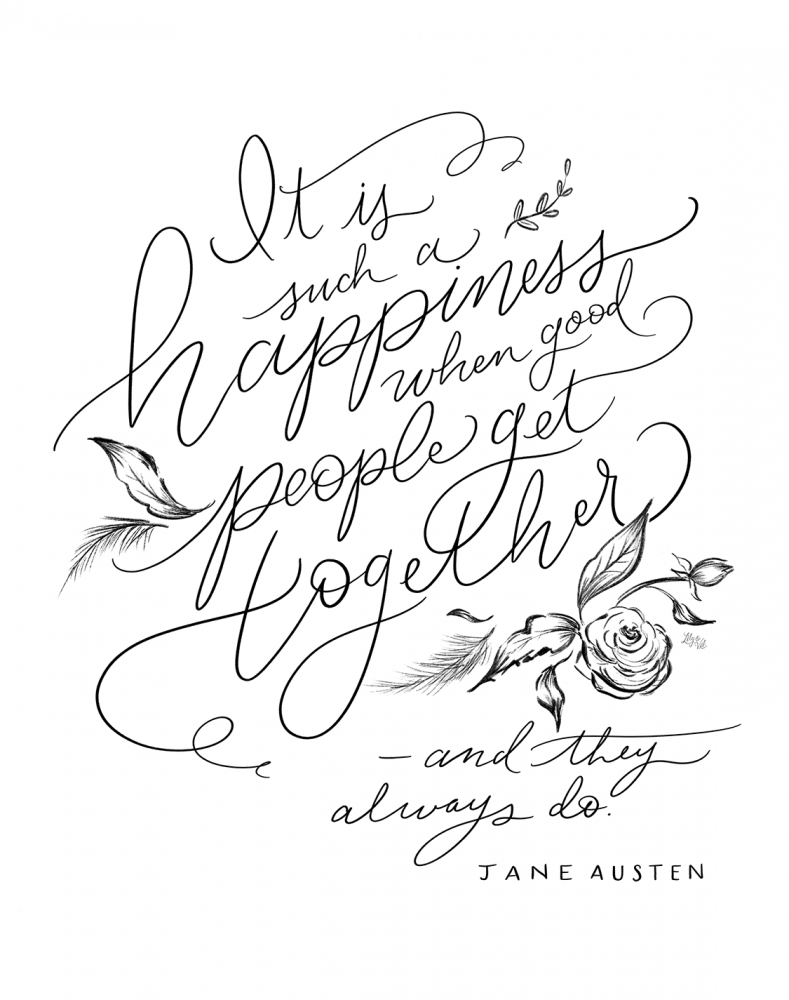 It is
such a
happiness
when good
people get
together
Lily & Val
—and they
always do.
JANE AUSTEN